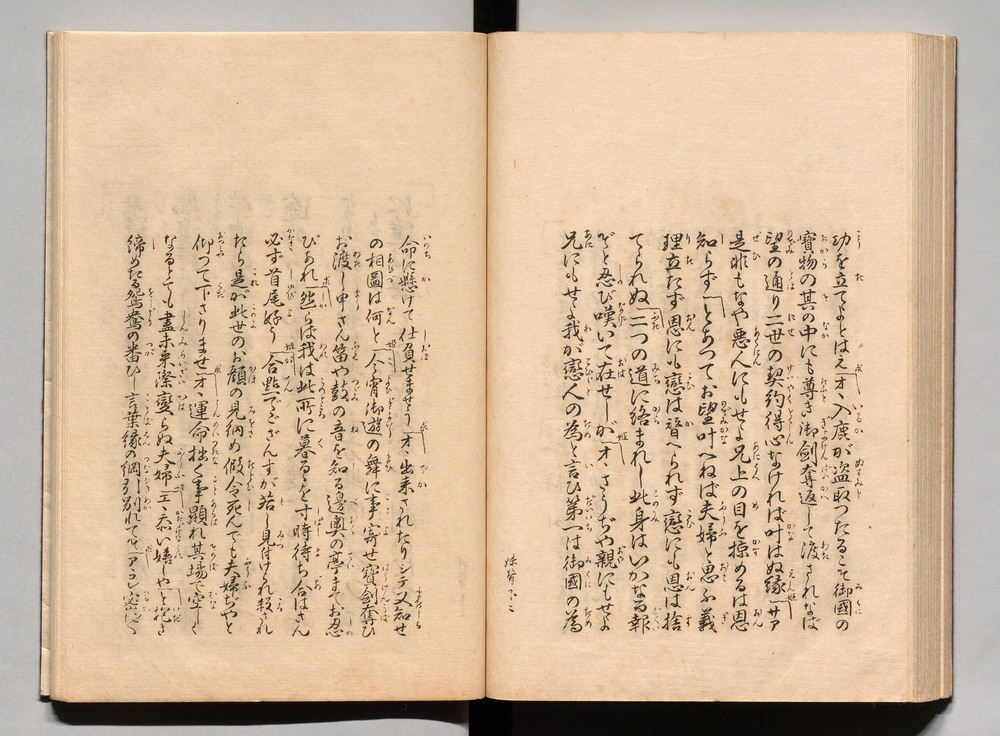 功を立てよとはえ オヽ入鹿が盗取つたるこそ御國の
寶物の其の中にも尊き御劍奪返して渡されなば
望の通り二世の契約得心なければ叶はぬ縁 サア
是非もなや悪人にもせよ兄上の目を掠めるは恩
知らず とあつてお望叶へねば夫婦と思ふ義
理立たず恩にも戀は替へられず戀にも恩は捨
てられぬ 二つの道に絡まれし此身はいかなる報
ぞと忍び嘆いて在せしが オヽさうぢや親にもせよ
兄にもせよ我が戀人の為と言ひ第一は御國の為
命に懸けて仕負せませう オヽ出來されたりシテ又知せ
の相圖は何と 今宵御遊の舞に事寄せ寶劍奪ひ
お渡し申さん笛や鼓の音を知る邊奥の亭までお忍
びあれ 然らば我は此所に暮るゝを寸時待ち合はさん
必ず首尾好う 合點でござんすが若し見付けられ殺され
たら是が此世のお顔の見納め假令死んでも夫婦ぢやと
仰つて下さりませ オヽ運命拙く事顯れ其場で空しく
なるとても盡未來際變らぬ夫婦 エヽ忝い嬉しやと抱き
締めたる鴛鴦の番ひし言葉縁の綱引別れて